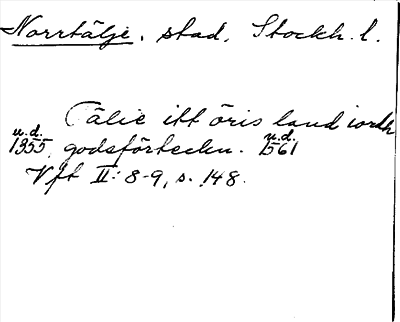 Norrtälje, stad, Stockh. l.
Tälie itt öris land iordh
u.d. 1355, godsförteckn. u.d. 1561
Vft II: 8-9, s. 148.